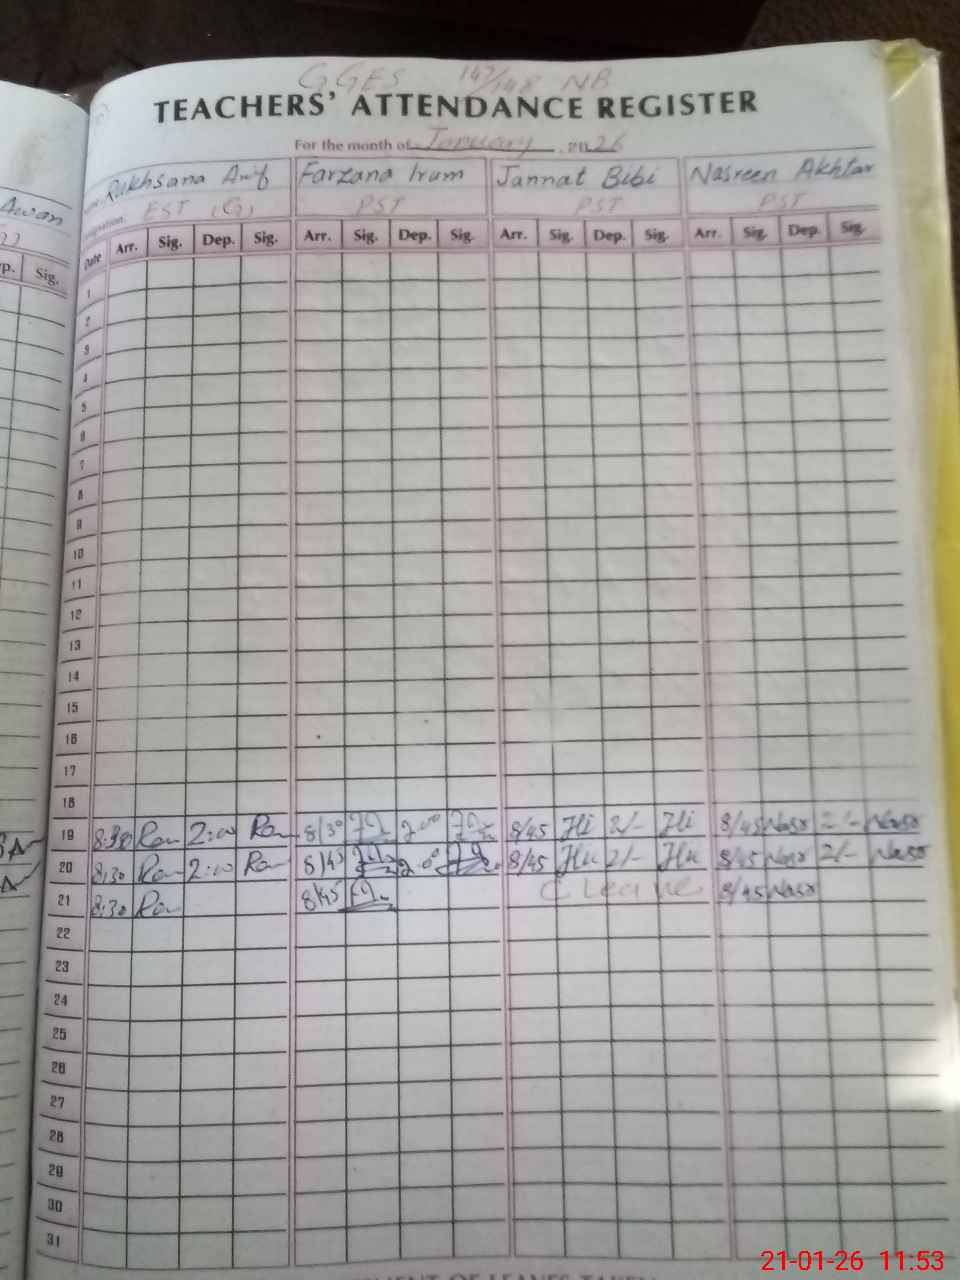 GGES 147/148 NB
TEACHERS' ATTENDANCE REGISTER
For the month of January 2026
Awan Rukhsana Arif Farzana Irum Jannat Bibi Nasreen Akhtar
Designation EST (G) PST PST PST
p. Sig. Date Arr. Sig. Dep. Sig. Arr. Sig. Dep. Sig. Arr. Sig. Dep. Sig. Arr. Sig. Dep. Sig.
1
2
3
4
5
6
7
8
9
10
11
12
13
14
15
16
17
18
19 8:30 2:00 8/30 2:00 8/45 2/- 8/45 Nasr 2/- Nasr
20 8:30 2:00 8/45 2:00 8/45 2/- 8/45 Nasr 2/- Nasr
21 8:30 8/45 C Leave 8/45 Nasr
22
23
24
25
26
27
28
29
30
31
21-01-26 11:53